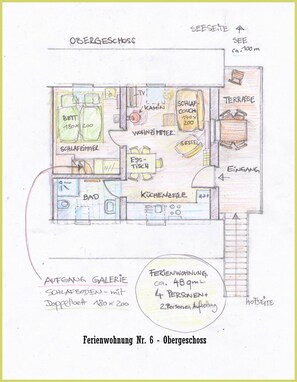 SEESEITE
OBERGESCHOSS
SEE
ca. 100 m
TV
KAMIN
SCHLAF-
COUCH
200
TERRASSE
BETT
180 x 200
WOHNZIMMER
SCHLAFZIMMER
ESS-
TISCH
EINGANG
BAD
KÜCHENZEILE
AUFGANG GALERIE
SCHLAFBODEN - mit
Doppelbett 180 x 200
FERIENWOHNUNG
ca. 48 qm
4 PERSONEN +
2 Personen Aufbettung
HOFSEITE
Ferienwohnung Nr. 6 - Obergeschoss